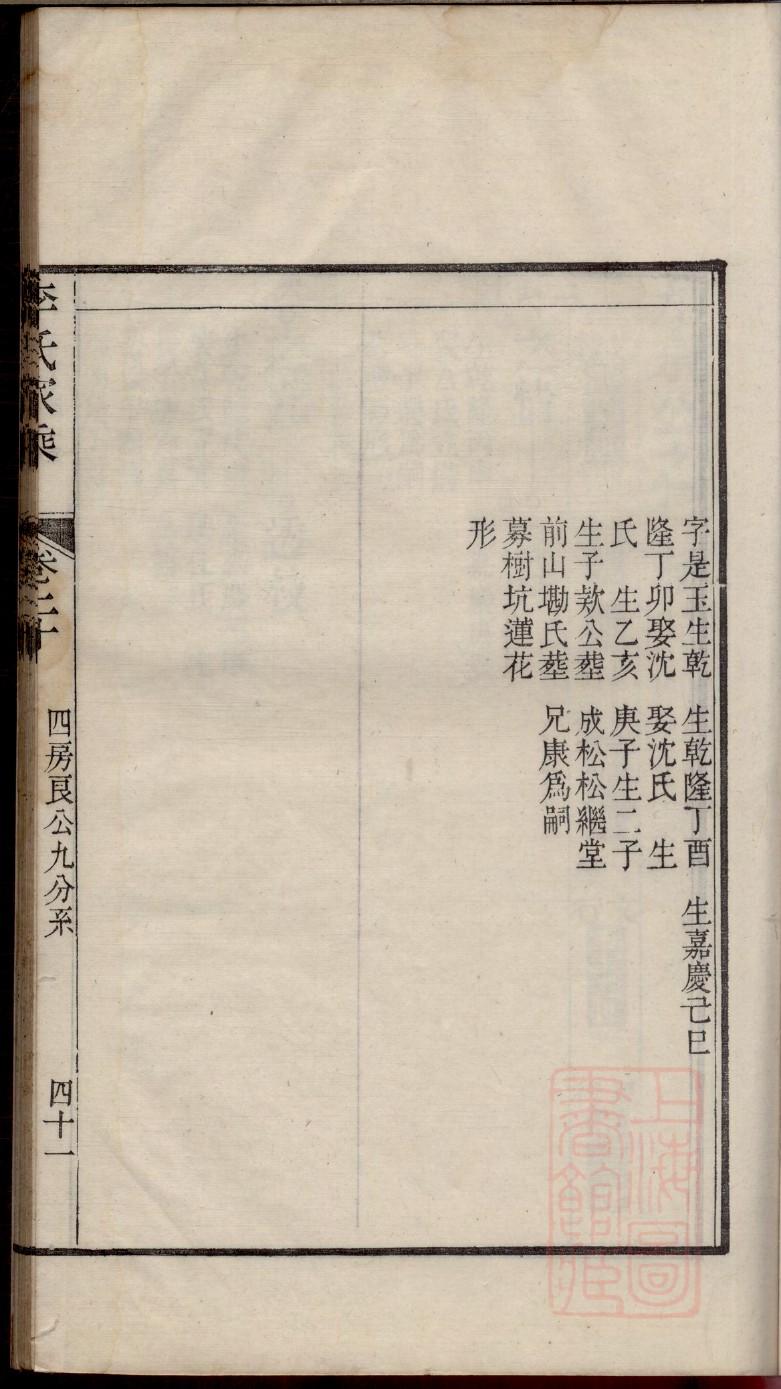 字是玉生乾
隆丁卯娶沈
氏　生乙亥
生子欵公塟
前山墈氏塟
募樹坑蓮花
形
生乾隆丁酉
娶沈氏　生
庚子生二子
成松松繼堂
兄康爲嗣
生嘉慶己巳
李氏家乘
卷二十
四房艮公九分系
四十一
上海圖
書館藏